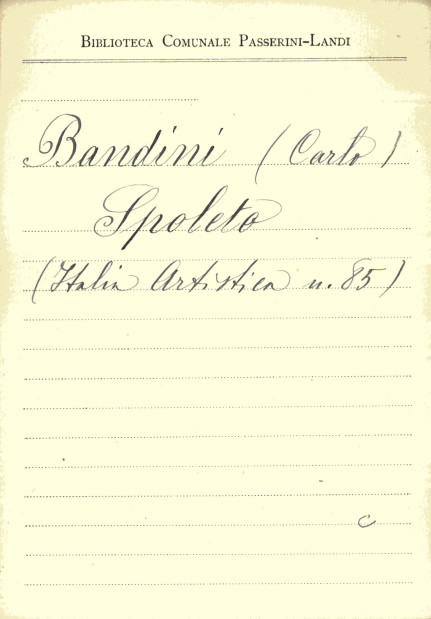 Biblioteca Comunale Passerini-Landi
Bandini (Carlo)
Spoleto
(Italia Artistica n. 85)
c